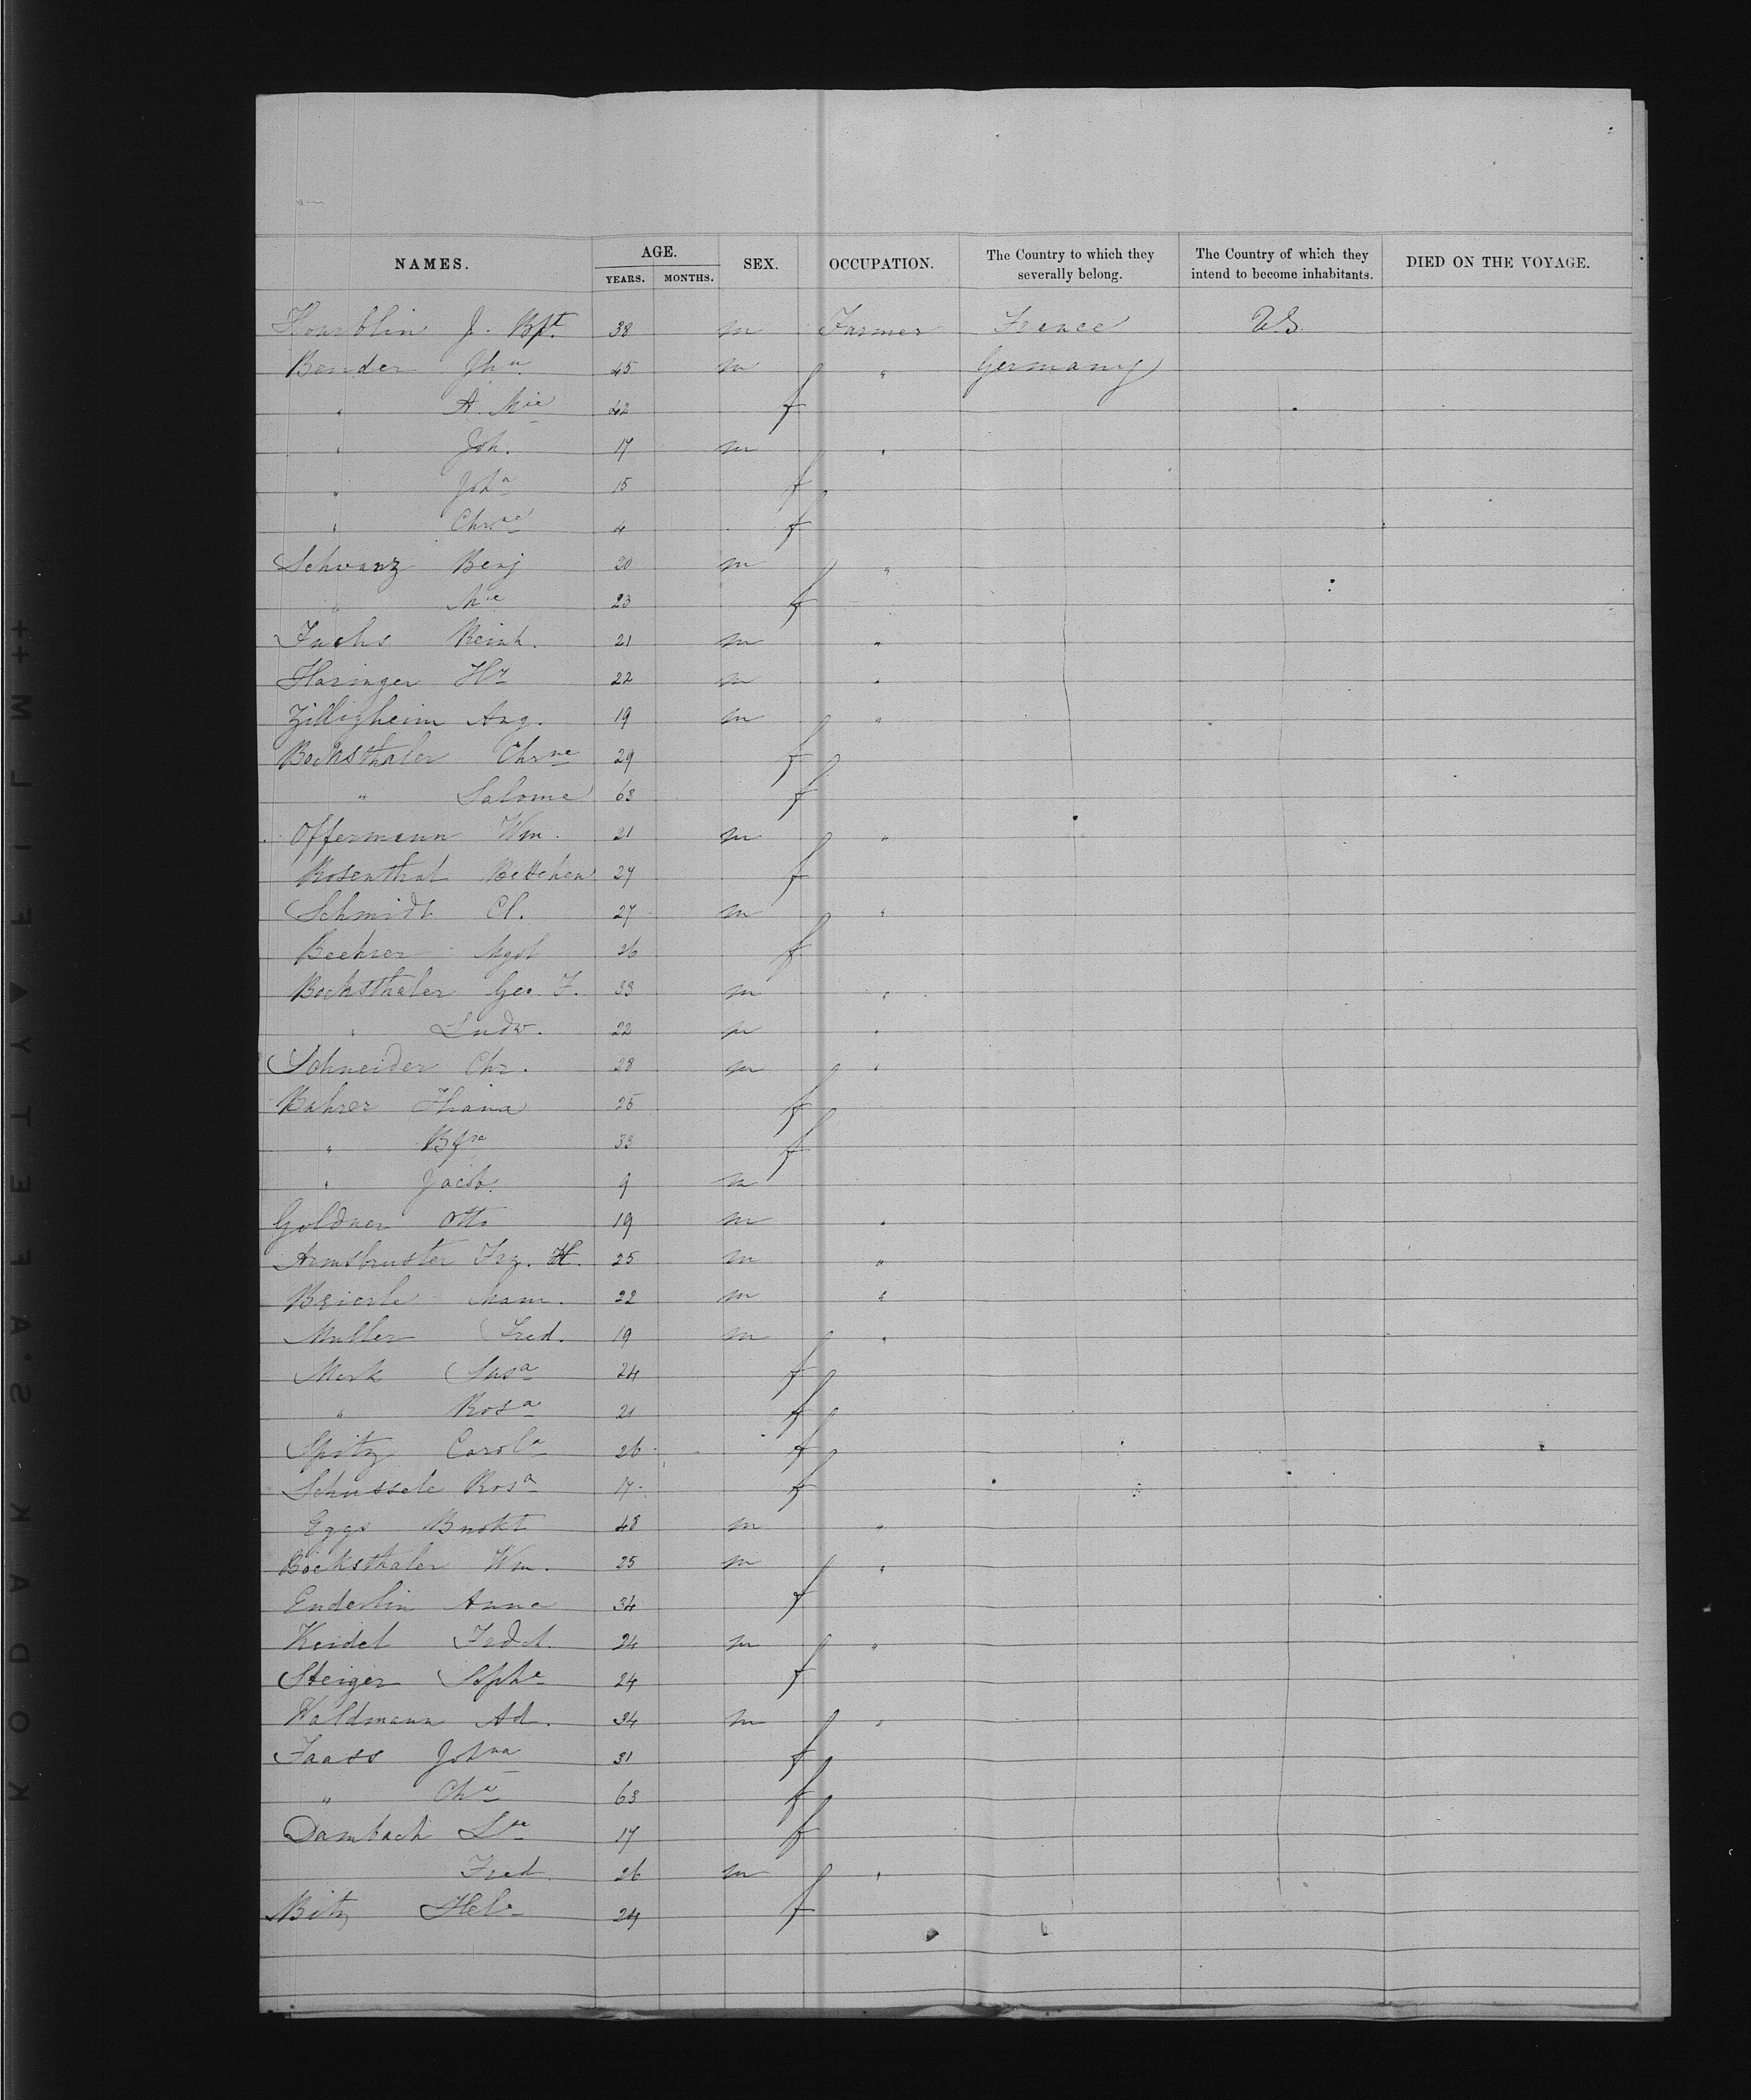 NAMES. AGE. SEX. OCCUPATION. The Country to which they severally belong. The Country of which they intend to become inhabitants. DIED ON THE VOYAGE.
YEARS. MONTHS.
Hourblin J. Bpt. 38 m Farmer France U.S.
Bender Jhn 45 m " Germany
" A. Mie 42 f
" Joh. 17 m "
" Joha 15 f
" Chrne 4 f
Schwarz Benj 20 m "
" Mie 23 f
Fuchs Reinh. 21 m "
Haringer Hr 22 m "
Zilligheim Aug. 19 m "
Bocksthaler Chrne 29 f
" Salome 63 f
Offermann Wm. 21 m "
Rosenthal Bettchen 27 f
Schmidt Cl. 27 m "
Beehrer 26 f
Bocksthaler Geo. F. 33 m "
" Ludw. 22 m "
Schneider Chr. 28 m "
Bahrer 25 f
" 33 f
" Jacob. 9 m
Goldner Otto 19 m "
Armbruster Frz. H. 25 m "
Beierle 22 m "
Muller Fred. 19 m "
Merk Susa 24 f
" Rosa 21 f
Spitz Carola 26 f
Schussele Rosa 17 f
Eggs 48 m "
Bocksthaler Wm. 25 m "
Enderlin Anna 34 f
Keidel Fredd. 24 m "
Steiger Sophe 24 f
Waldmann Ad. 34 m "
Faass Johna 31 f
" 63 f
Dambach 17 f
Fred 26 m "
Bitz Hele 24 f
KODAK·S.A.FETY▲FILM++